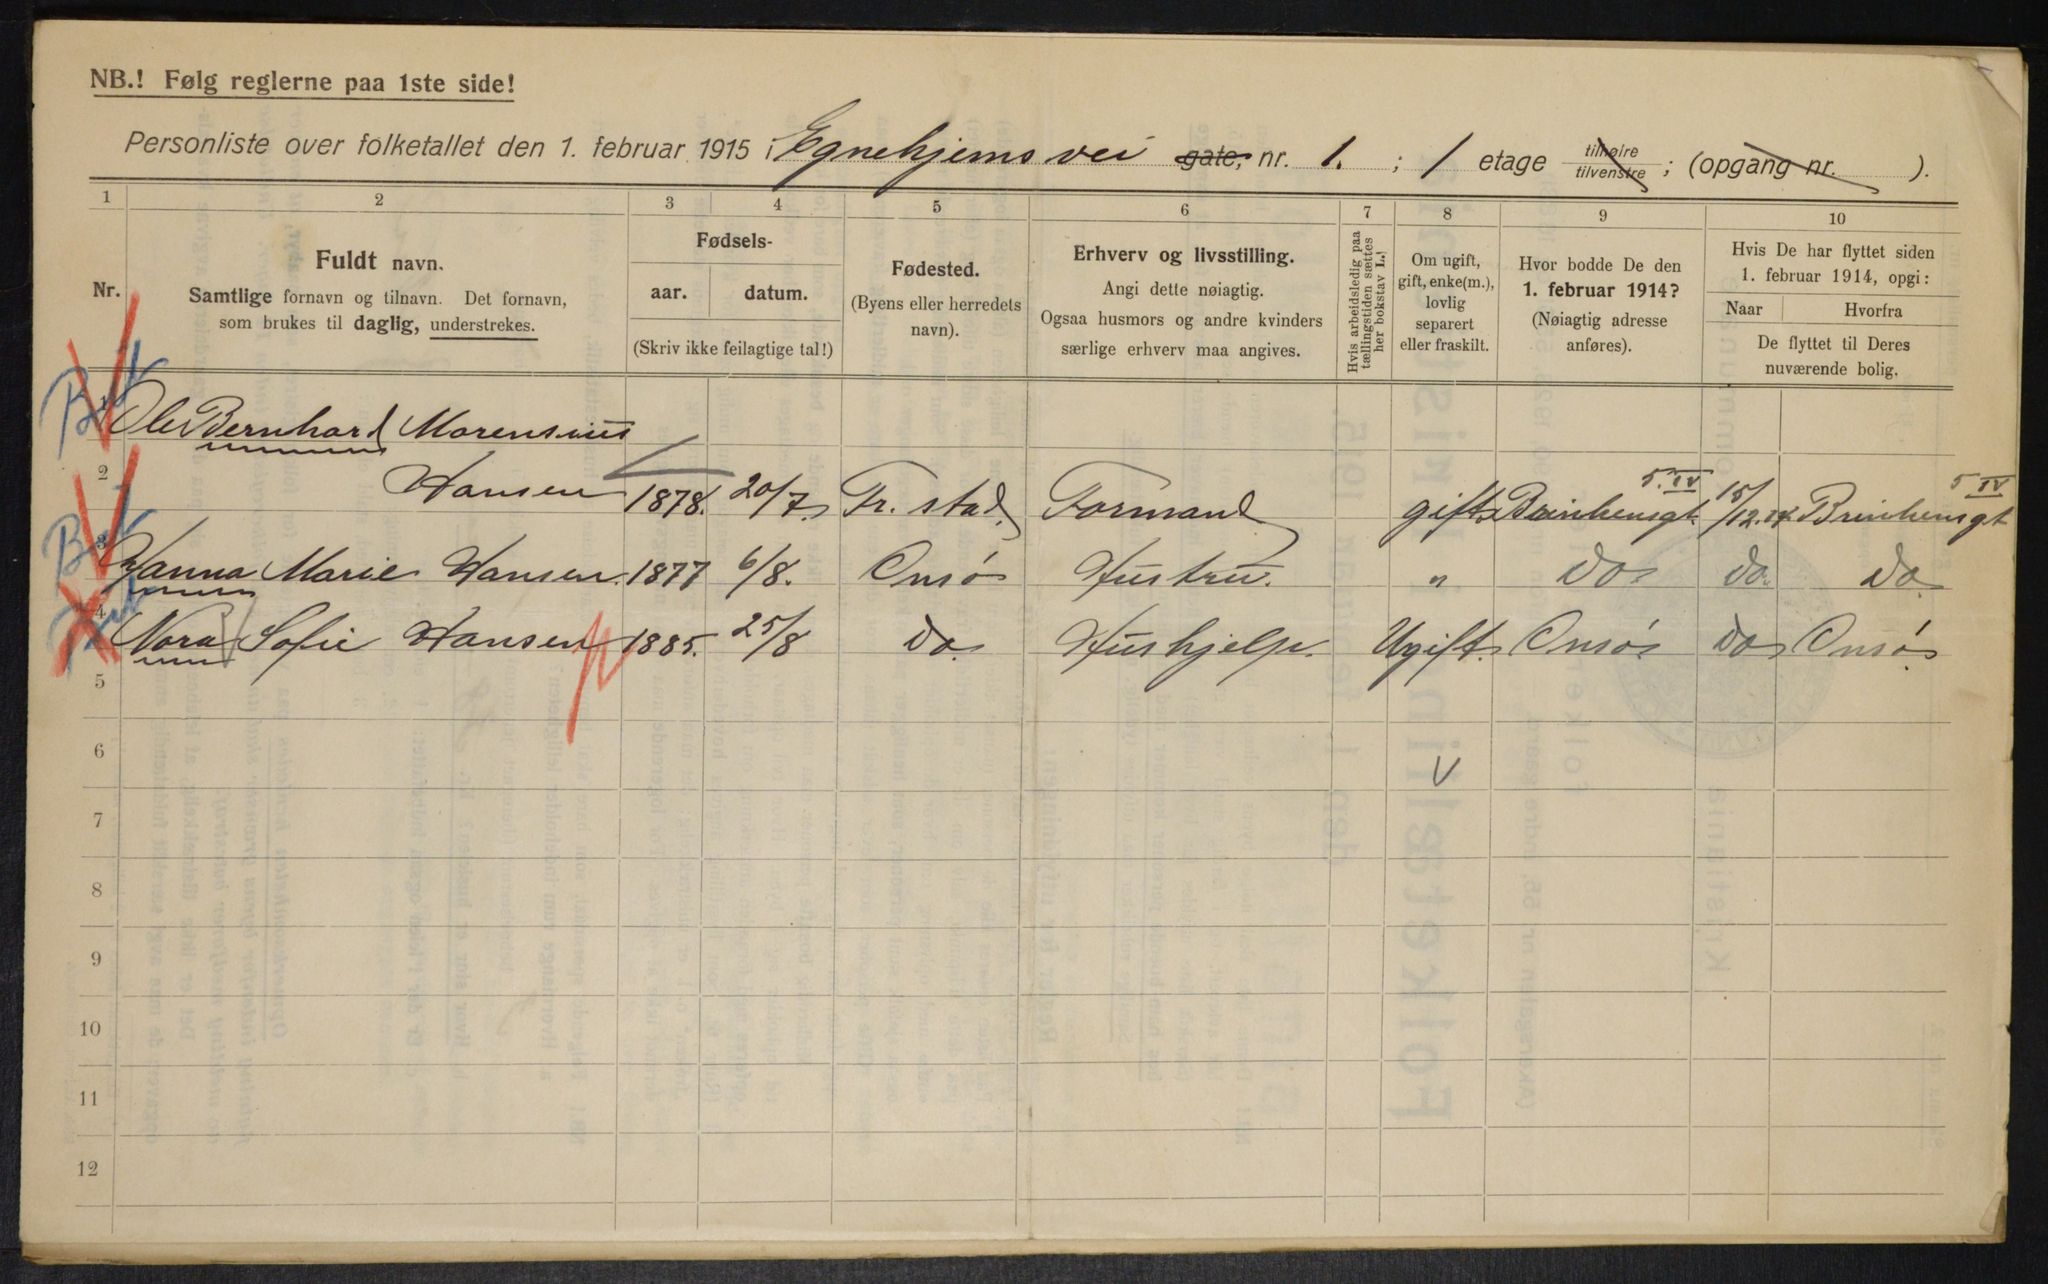 NB.! Følg reglerne paa 1ste side!
Personliste over folketallet den 1. februar 1915 i Egnehjemsvei gate, nr. 1. ; 1 etage tilhøire tilvenstre ; (opgang nr. ).
1 2 3 4 5 6 7 8 9 10
Nr.
Fuldt navn.
Samtlige fornavn og tilnavn. Det fornavn,
som brukes til daglig, understrekes.
Fødsels-
aar. datum.
(Skriv ikke feilagtige tal!)
Fødested.
(Byens eller herredets
navn).
Erhverv og livsstilling.
Angi dette nøiagtig.
Ogsaa husmors og andre kvinders
særlige erhverv maa angives.
Hvis arbeidsledig paa
tællingstiden sættes
her bokstav L.!
Om ugift,
gift, enke(m.),
lovlig
separert
eller fraskilt.
Hvor bodde De den
1. februar 1914?
(Nøiagtig adresse
anføres).
Hvis De har flyttet siden
1. februar 1914, opgi:
Naar Hvorfra
De flyttet til Deres
nuværende bolig.
1 Ole Bernhard Marensius
2 Hansen 1878. 20/7. Fr. stad. Formand gift. 5. IV 15/12.14. 5 IV
3 Hanna Marie Hansen. 1877 6/8. Onsø Hustru. " do do. do.
4 Nora Sofie Hansen 1885. 25/8 do. Hushjelp. Ugift. Onsø. do Onsø.
5
6
7
8
9
10
11
12